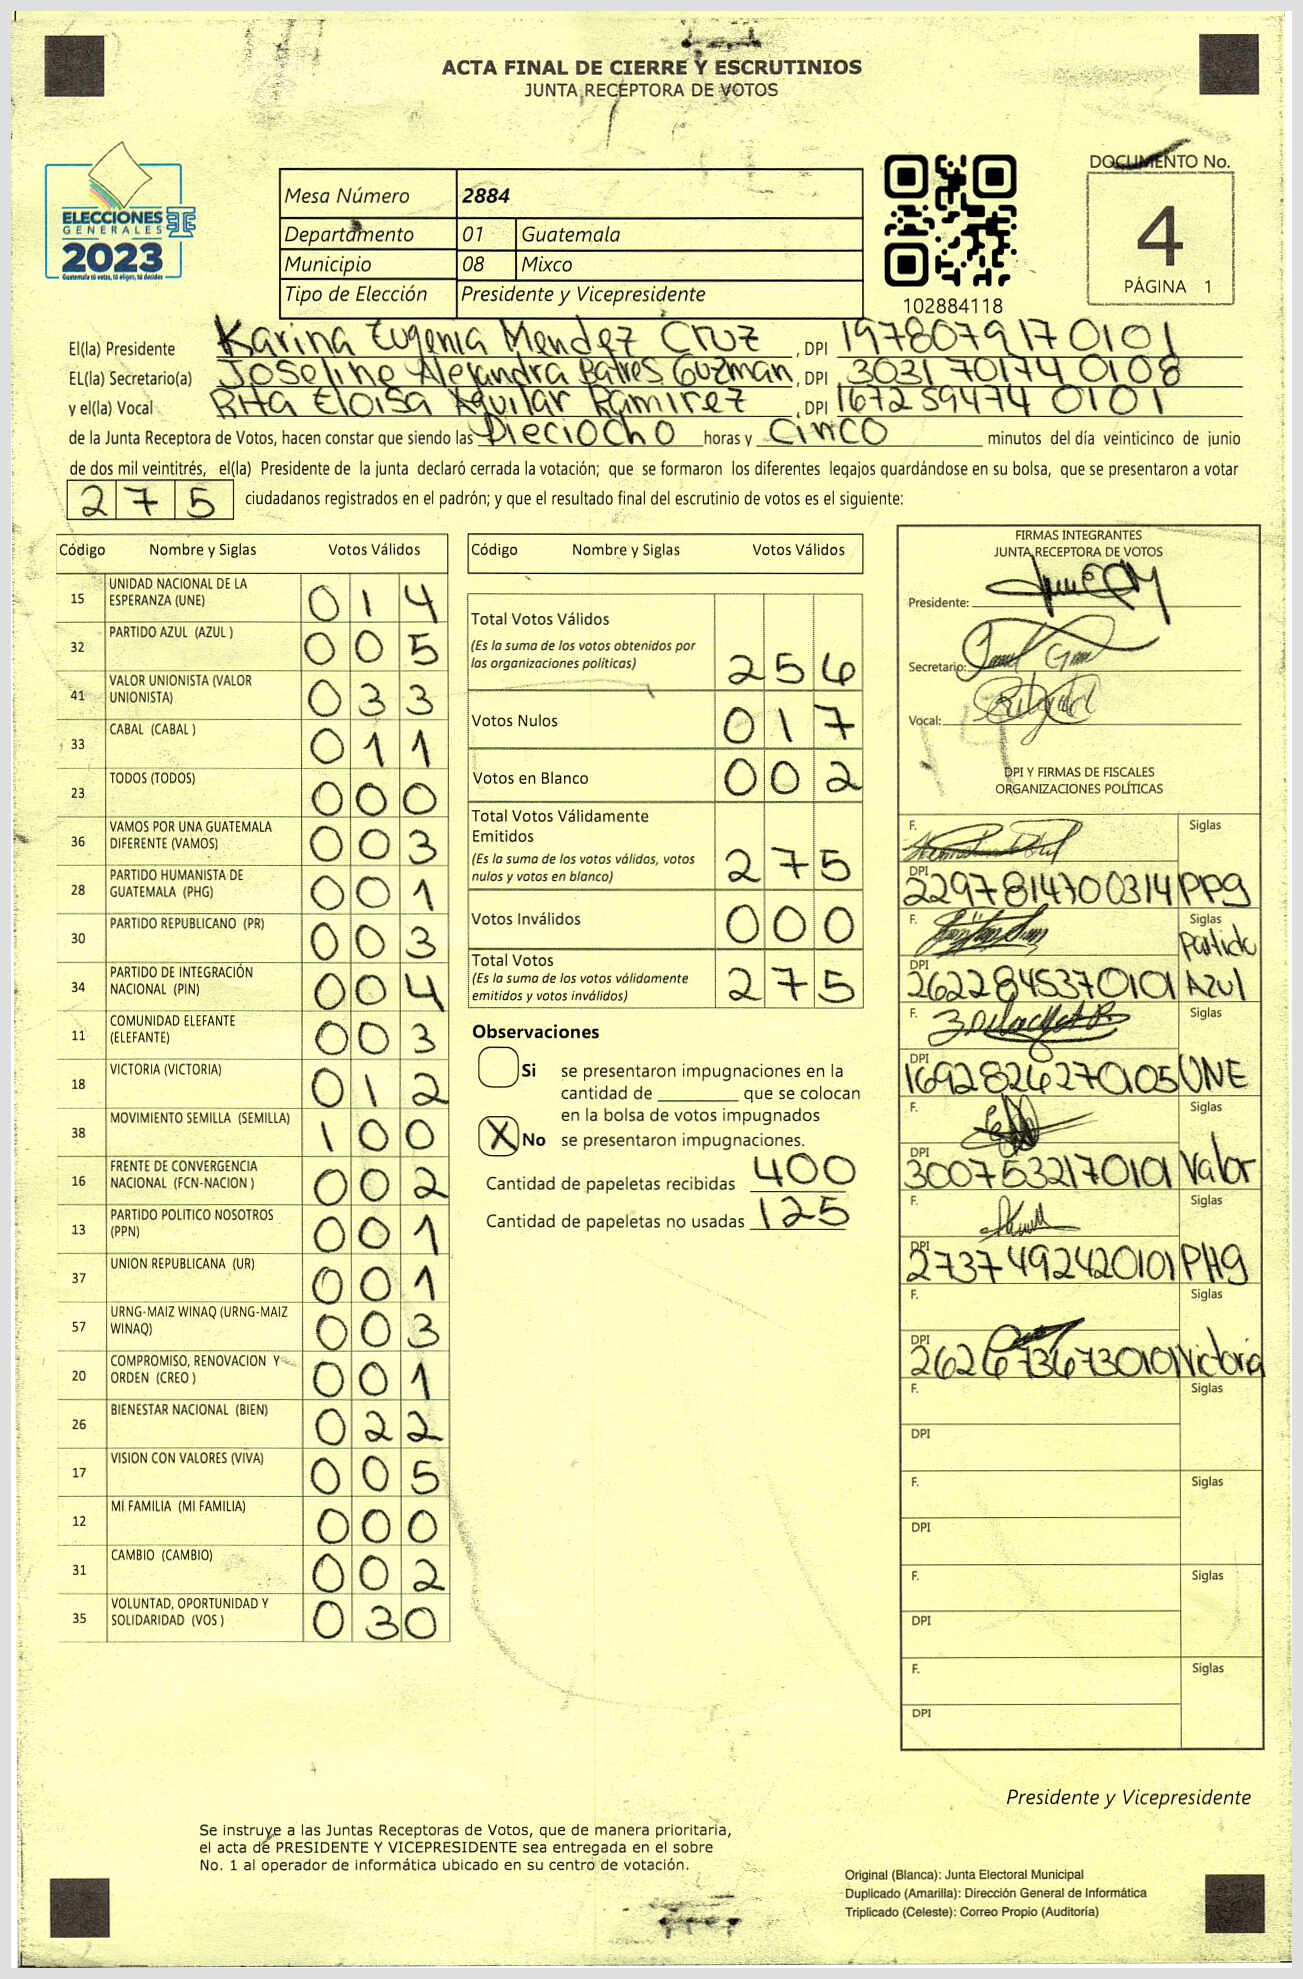 ACTA FINAL DE CIERRE Y ESCRUTINIOS
JUNTA RECEPTORA DE VOTOS
ELECCIONES
GENERALES
2023
Guatemala tú votas, tú eliges, tú decides
Mesa Número 2884
Departamento 01 Guatemala
Municipio 08 Mixco
Tipo de Elección Presidente y Vicepresidente
102884118
DOCUMENTO No.
4
PÁGINA 1
El(la) Presidente Karina Eugenia Mendez Cruz, DPI 1978079170101
EL(la) Secretario(a) Joseline Alejandra Batres Guzman, DPI 3031701740108
y el(la) Vocal Rita Eloisa Aguilar Ramirez, DPI 1672594740101
de la Junta Receptora de Votos, hacen constar que siendo las Dieciocho horas y Cinco minutos del día veinticinco de junio
de dos mil veintitrés, el(la) Presidente de la junta declaró cerrada la votación; que se formaron los diferentes legajos guardándose en su bolsa, que se presentaron a votar
275 ciudadanos registrados en el padrón; y que el resultado final del escrutinio de votos es el siguiente:
Código Nombre y Siglas Votos Válidos
15 UNIDAD NACIONAL DE LA ESPERANZA (UNE) 014
32 PARTIDO AZUL (AZUL ) 005
41 VALOR UNIONISTA (VALOR UNIONISTA) 033
33 CABAL (CABAL ) 011
23 TODOS (TODOS) 000
36 VAMOS POR UNA GUATEMALA DIFERENTE (VAMOS) 003
28 PARTIDO HUMANISTA DE GUATEMALA (PHG) 001
30 PARTIDO REPUBLICANO (PR) 003
34 PARTIDO DE INTEGRACIÓN NACIONAL (PIN) 004
11 COMUNIDAD ELEFANTE (ELEFANTE) 003
18 VICTORIA (VICTORIA) 012
38 MOVIMIENTO SEMILLA (SEMILLA) 100
16 FRENTE DE CONVERGENCIA NACIONAL (FCN-NACION ) 002
13 PARTIDO POLITICO NOSOTROS (PPN) 001
37 UNION REPUBLICANA (UR) 001
57 URNG-MAIZ WINAQ (URNG-MAIZ WINAQ) 003
20 COMPROMISO, RENOVACION Y ORDEN (CREO ) 001
26 BIENESTAR NACIONAL (BIEN) 022
17 VISION CON VALORES (VIVA) 005
12 MI FAMILIA (MI FAMILIA) 000
31 CAMBIO (CAMBIO) 002
35 VOLUNTAD, OPORTUNIDAD Y SOLIDARIDAD (VOS ) 030
Código Nombre y Siglas Votos Válidos
Total Votos Válidos
(Es la suma de los votos obtenidos por
las organizaciones políticas) 256
Votos Nulos 017
Votos en Blanco 002
Total Votos Válidamente
Emitidos
(Es la suma de los votos válidos, votos
nulos y votos en blanco) 275
Votos Inválidos 000
Total Votos
(Es la suma de los votos válidamente
emitidos y votos inválidos) 275
Observaciones
Si se presentaron impugnaciones en la
cantidad de ________ que se colocan
en la bolsa de votos impugnados
X No se presentaron impugnaciones.
Cantidad de papeletas recibidas 400
Cantidad de papeletas no usadas 125
FIRMAS INTEGRANTES
JUNTA RECEPTORA DE VOTOS
Presidente:
Secretario:
Vocal:
DPI Y FIRMAS DE FISCALES
ORGANIZACIONES POLÍTICAS
F. Siglas
DPI 2297814700314 PPg
F. Siglas
DPI 2622845370101 Partido Azul
F. Siglas
DPI 1692826270105 UNE
F. Siglas
DPI 3007532170101 Valor
F. Siglas
DPI 2737492420101 PHg
F. Siglas
DPI 2626736730101 Victoria
F. Siglas
DPI
F. Siglas
DPI
F. Siglas
DPI
F. Siglas
DPI
Presidente y Vicepresidente
Se instruye a las Juntas Receptoras de Votos, que de manera prioritaria,
el acta de PRESIDENTE Y VICEPRESIDENTE sea entregada en el sobre
No. 1 al operador de informática ubicado en su centro de votación.
Original (Blanca): Junta Electoral Municipal
Duplicado (Amarilla): Dirección General de Informática
Triplicado (Celeste): Correo Propio (Auditoría)